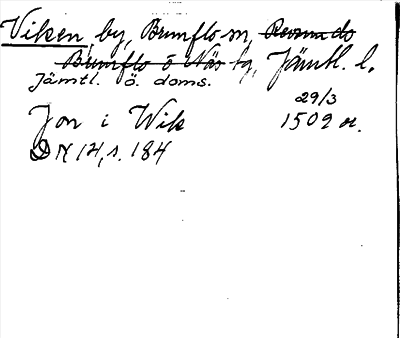 Viken, by, Brunflo sn, Revsunds
Brunflo o Näs tg, Jämtl. l.
Jämtl. ö. doms.
29/3
Jon i Wik 1509 or.
DN 14, s. 184